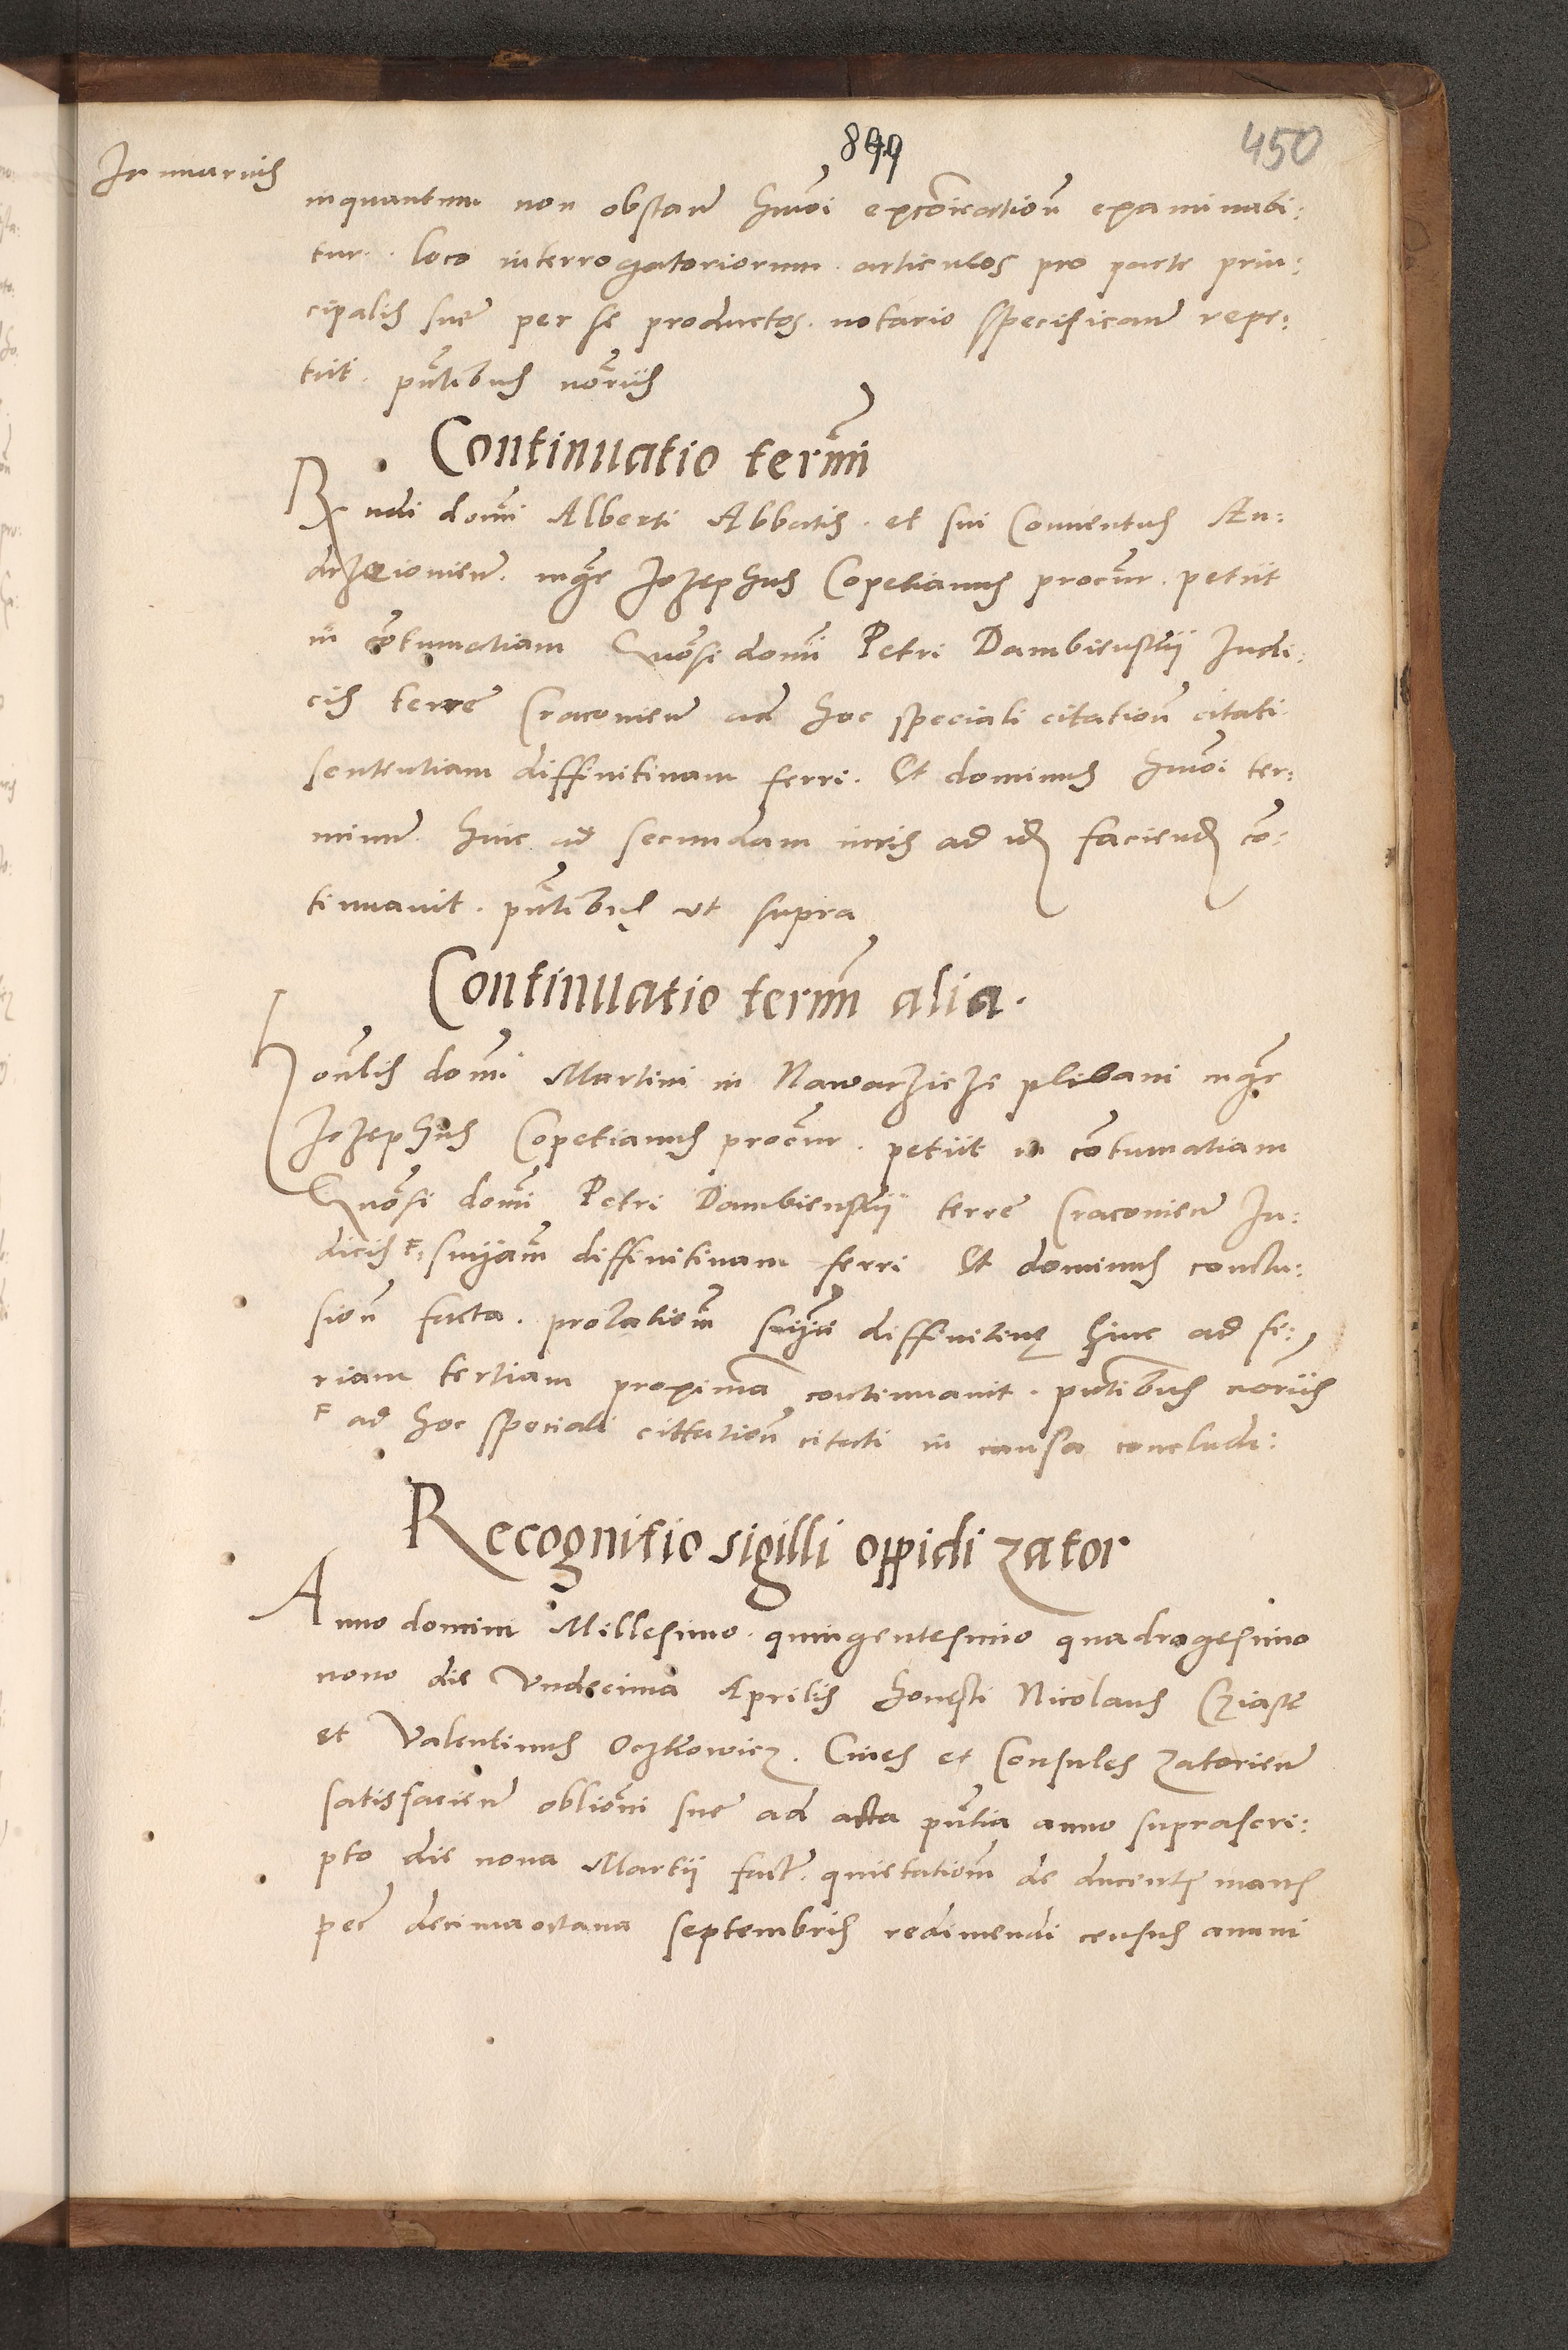 899
450
inquantum non obstañ hmõi excõicationẽ examinabi:
tur. loco interrogatoriorum articulos pro parte prin:
cipalis sue per se productos. notario specificañ repe:
tiit. pñtibus notariis
Continuatio termĩ
Rndi domĩ Alberti Abbatis. et sui Conuentus An:
drzeiovieñ. mgr Jozephus Copetianus procur. petiit
in cõtumatiam Gnosi domĩ Petri Dambienskÿ Judi:
cis terre Cracovieñ ad hoc speciali citationẽ citati
sententiam diffinitivam ferri. Et dominus hmõi ter:
minũ. hinc ad secundam iuris ad id faciend cõ:
tinuavit. pñtibus ut supra
Continuatio termĩ alia.
Honlis domĩ Martini in Nawarzicze plebani mgr
Jozephus Copetianus procur. petiit in cõtumatiam
Gnosi domĩ Petri Dambienskÿ terre Cracovieñ Ju:
dicis F sniam diffinitivam ferri Et dominus conclu:
sionẽ facta. prolationẽ snie diffinitive hinc ad fe:
riam tertiam proximã continuavit. pñtibus notariis
F ad hoc speciali cittationẽ citati in causa concludi:
Recognitio sigilli oppidi zator
Anno domini Millesimo quingentesimo quadragesimo
nono die Undecima Aprilis honesti Nicolaus Cziasr̃
et Valentinus Oczkowicz. Cives et Consules Zatorieñ
satisfacieñ obliõni sue ad acta pñtia anno suprascri:
pto die nona Martÿ fact. quietationẽ de ducentis marcis
pec decimaoctava septembris redimendi census annui